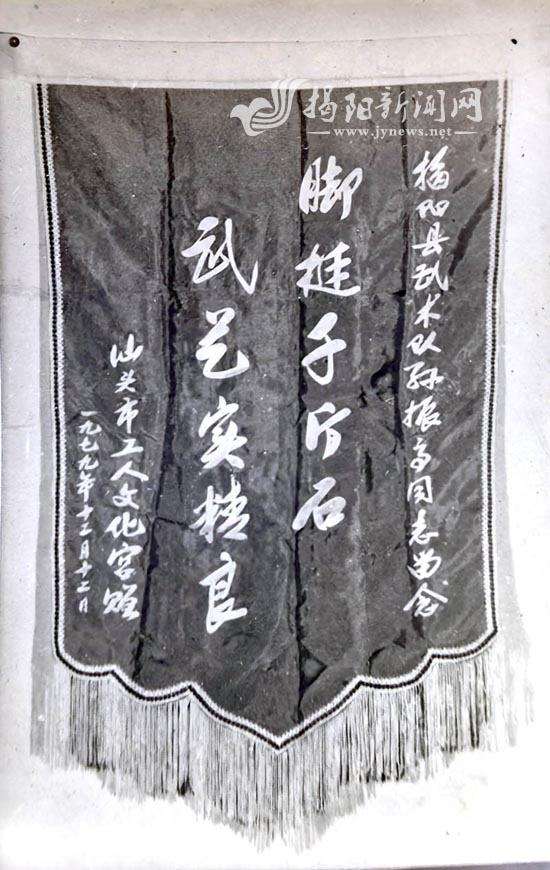 揭阳新闻网
www.jynews.net
揭阳县武术队孙振高同志留念
脚挂千斤石
武艺实精良
汕头市工人文化宫赠
一九七九年十二月十二日